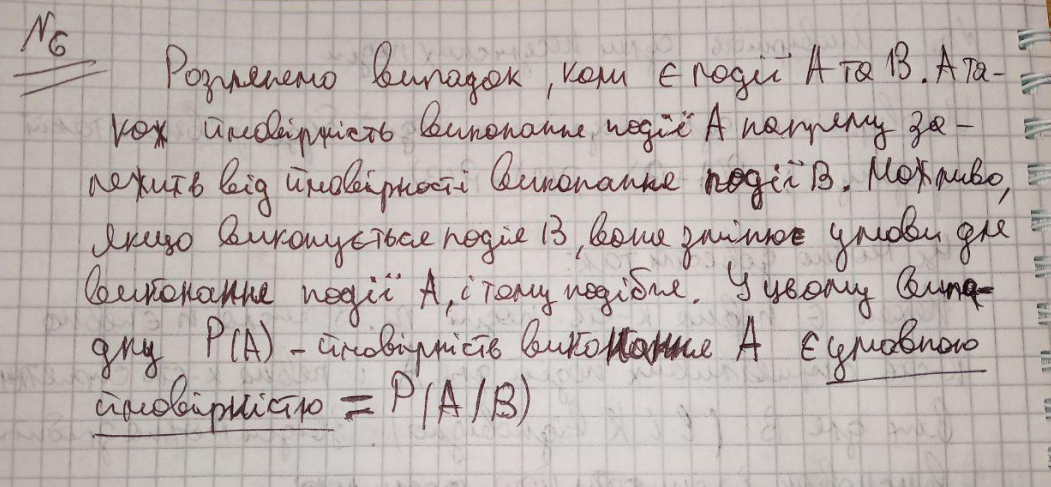 N6
Розглянемо випадок, коли є події A та B. А та-
кож ймовірність виконання події A напряму за-
лежить від ймовірності виконання події B. Можливо,
якщо виконується подія B, вона змінює умови для
виконання події A, і тому подібне. У цьому випа-
дку P(A) - ймовірність виконання A є умовною
ймовірністю = P(A/B)